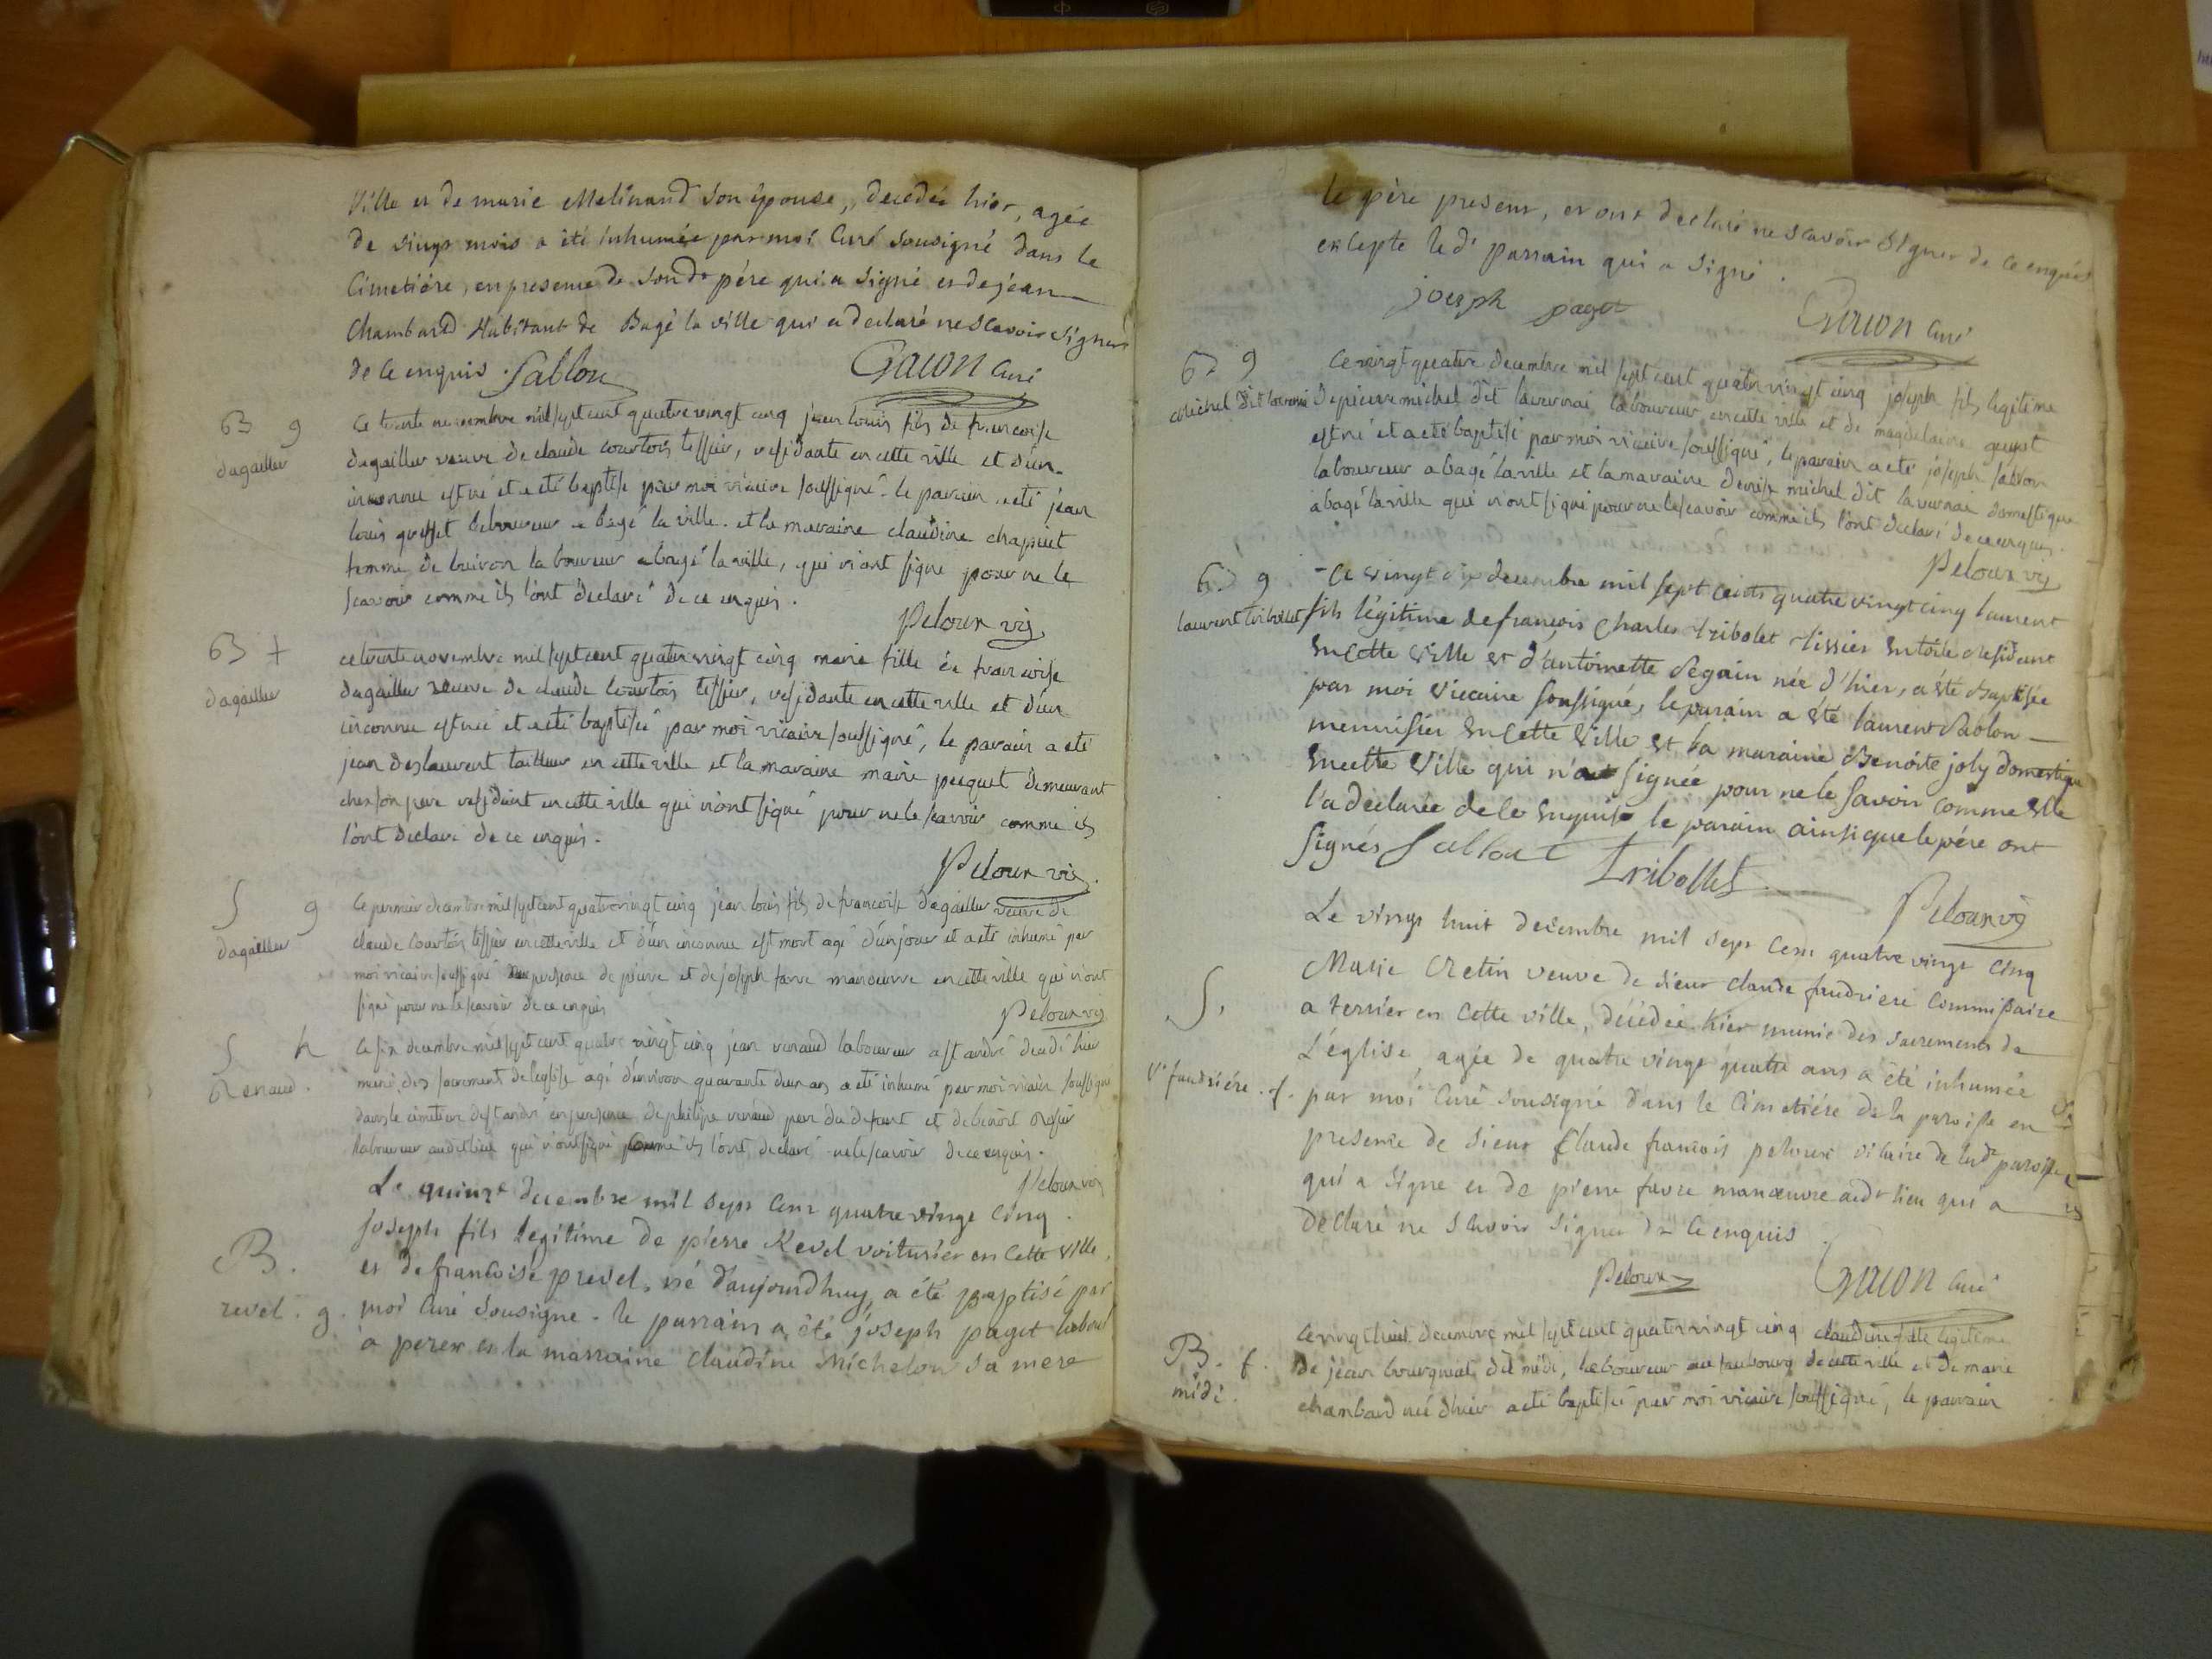 Ville et de marie Melinand son épouse, decedée hier, agée
de vingt mois a été inhumée par moi Curé sousigné dans le
Cimetiére, en presence de son dt pére qui a signé et de jean
Chambard Habitant de Bagé la ville qui a declaré ne scavoir signer
de ce enquis. Sablon Gacon Curé
B g
dagallier
ce trente novembre mil sept cent quatre vingt cinq jean louis fils de francoise
dagallier veuve de claude courtois tessier, residante en cette ville et d'un
inconnu est né et a eté baptisé par moi vicaire soussigné. le parain a eté jéan
louis laboureur a bagé la ville. et la maraine claudine chapuit
femme de buiron laboureur a bagé la ville, qui n'ont signé pour ne le
scavoir comme ils l'ont declaré de ce enquis.
Peloux vic
B +
dagallier
ce trente novembre mil sept cent quatre vingt cinq marie fille de francoise
dagallier veuve de claude courtois tessier, residante en cette ville et d'un
inconnu est née et a eté baptisée par moi vicaire soussigné, le parain a eté
jean deslaurent tailleur en cette ville et la maraine marie pecquet demeurant
ches son pere residant en cette ville qui n'ont signé pour ne le scavoir comme ils
l'ont declaré de ce enquis.
Peloux vic.
S g
dagallier
Le premier decembre mil sept cent quatre vingt cinq jean louis fils de francoise dagallier veuve de
claude courtois tessier en cette ville et d'un inconnu est mort agé d'un jour et a eté inhumé par
moi vicaire soussigné en presence de pierre et de joseph favre manoeuvre en cette ville qui n'ont
signé pour ne le scavoir de ce enquis
Peloux vic
S h
Renaud.
Ce six decembre mil sept cent quatre vingt cinq jéan renaud laboureur a st andré decedé hier
muni des sacrement de leglise agé d'environ quarante deux ans a eté inhumé par moi vicaire soussigné
dans le cimetiere de st andré en presence de philipe renaud pere du defunt et de benoit
laboureur audit lieu qui n'ont signé comme ils l'ont declaré ne le scavoir de ce enquis.
Peloux vic
Le quinze decembre mil sept cent quatre vingt cinq
B.
revel. g.
joseph fils legitime de pierre Revel voiturier en cette ville,
et de francoise prevel, né d'aujourdhuy, a été baptisé par
moi Curé sousigné. le parrain a été joseph paget labour
a perex et la marraine Claudine Michelon sa mere
le père present, et ont declaré ne scavoir signer de ce enquis
excepté le dt parrain qui a signé.
joseph paget Gacon Curé
B g
Michel dit lavernai
Ce vingt quatre decembre mil sept cent quatre vingt cinq joseph fils legitime
de pierre michel dit lavernai laboureur en cette ville et de magdelaine
est né et a eté baptisé par moi vicaire soussigné, le parain a eté joseph sablon
laboureur a bagé la ville et la maraine denise michel dit lavernai domestique
a bagé la ville qui n'ont signé pour ne le scavoir comme ils l'ont declaré de ce enquis.
Peloux vic
B g
laurent tribollet
Ce vingt six decembre mil sept cents quatre vingt cinq laurent
fils légitime de francois Charles tribolet tissier en toile residant
en cette ville et d'antoinette Segain née d'hier, a été Baptisée
par moi viccaire soussigné, le parain a été laurent Sablon
menuisier en cette ville et la maraine Benoite joly domestique
en cette ville qui n'a signée pour ne le savoir comme elle
l'a declarée de ce enquise le parain ainsi que le pére ont
signés Sablon Tribollet
Peloux vic
S.
Ve faudriére. f.
Le vingt huit decembre mil sept cent quatre vingt cinq
Marie Cretin veuve de sieur claude faudriere Commissaire
a terrier en cette ville, décédée hier munie des sacremens de
L'église agée de quatre vingt quatre ans a été inhumée
par moi Curé sousigné dans le Cimetiére de la paroisse en
presence de sieur Claude francois peloux vicaire de lad. paroisse
qui a signé et de pierre favre manœuvre aud. lieu qui a
declaré ne scavoir signer de ce enquis.
Peloux Gacon Curé
B. f.
midi.
Ce vingt huit decembre mil sept cent quatre vingt cinq claudine fille legitime
de jean bourgeat dit midi, laboureur au faubourg de cette ville et de marie
chambard née d'hier a eté baptisée par moi vicaire soussigné, le parain